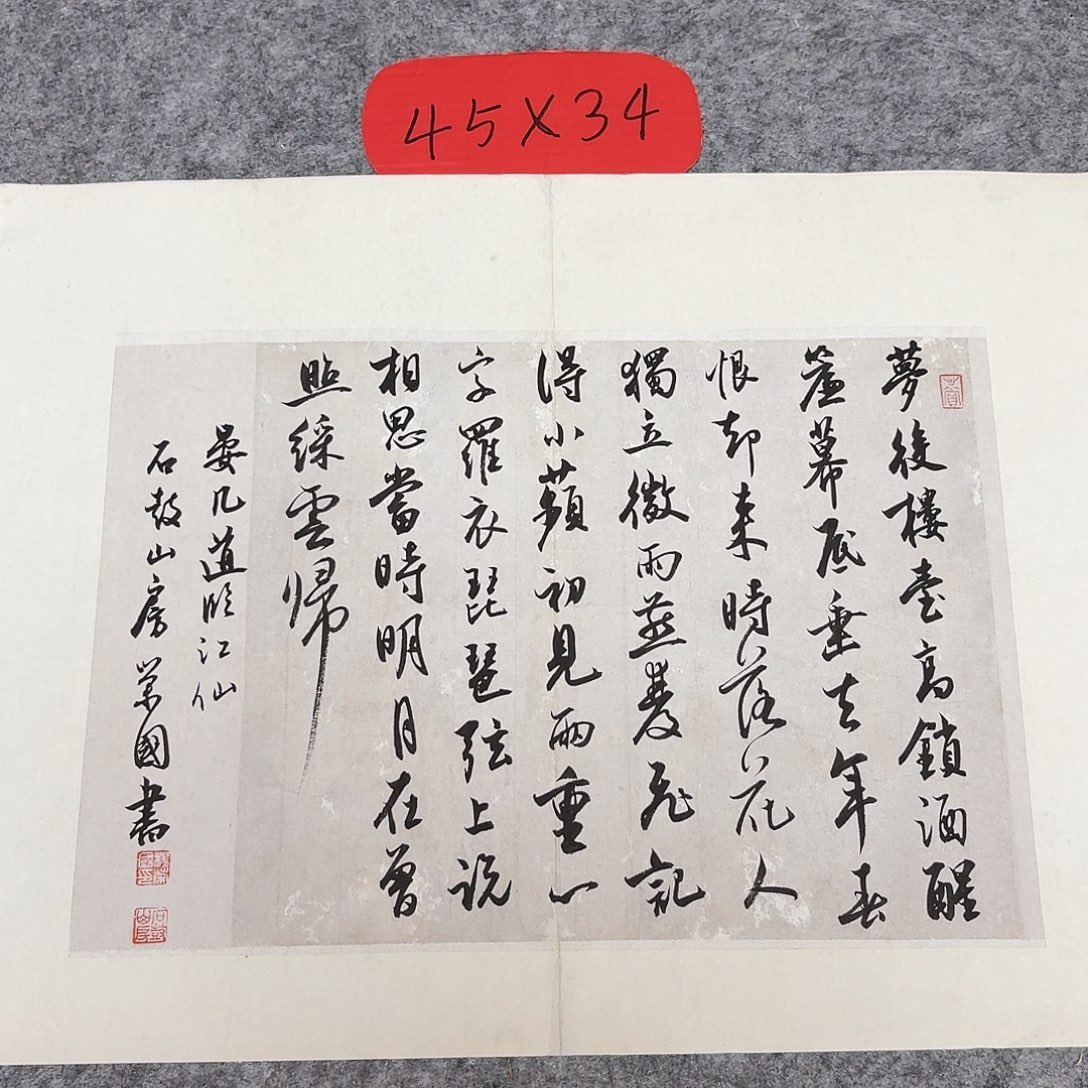 45×34
夢後樓臺高鎖酒醒
簾幕低垂去年春
恨却来時落花人
獨立微雨燕雙飛記
得小蘋初見兩重心
字羅衣琵琶弦上説
相思當時明月在曾
照綵雲歸
晏几道臨江仙
石鼓山房榮國書
石鼓山房